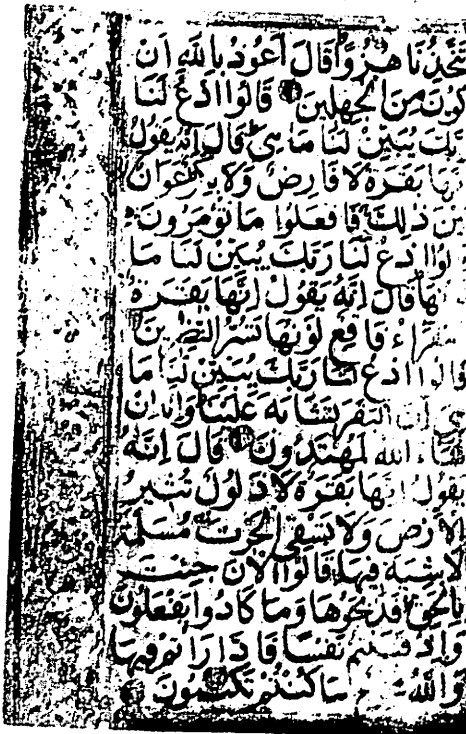 تَتَّخِذُنَا هُزُوًا قَالَ أَعُوذُ بِاللَّهِ أَنْ
أَكُونَ مِنَ الْجٰهِلِينَ قَالُوا ادْعُ لَنَا
رَبَّكَ يُبَيِّنْ لَنَا مَا هِيَ قَالَ إِنَّهُ يَقُولُ
إِنَّهَا بَقَرَةٌ لَا فَارِضٌ وَلَا بِكْرٌ عَوَانٌ
بَيْنَ ذٰلِكَ فَافْعَلُوا مَا تُؤْمَرُونَ
قَالُوا ادْعُ لَنَا رَبَّكَ يُبَيِّنْ لَنَا مَا
لَوْنُهَا قَالَ إِنَّهُ يَقُولُ إِنَّهَا بَقَرَةٌ
صَفْرَاءُ فَاقِعٌ لَوْنُهَا تَسُرُّ النّٰظِرِينَ
قَالُوا ادْعُ لَنَا رَبَّكَ يُبَيِّنْ لَنَا مَا
هِيَ إِنَّ الْبَقَرَ تَشَابَهَ عَلَيْنَا وَإِنَّا إِنْ
شَاءَ اللَّهُ لَمُهْتَدُونَ قَالَ إِنَّهُ
يَقُولُ إِنَّهَا بَقَرَةٌ لَا ذَلُولٌ تُثِيرُ
الْأَرْضَ وَلَا تَسْقِي الْحَرْثَ مُسَلَّمَةٌ
لَا شِيَةَ فِيهَا قَالُوا الْآنَ جِئْتَ
بِالْحَقِّ فَذَبَحُوهَا وَمَا كَادُوا يَفْعَلُونَ
وَإِذْ قَتَلْتُمْ نَفْسًا فَادَّارَأْتُمْ فِيهَا
وَاللَّهُ مُخْرِجٌ مَا كُنْتُمْ تَكْتُمُونَ